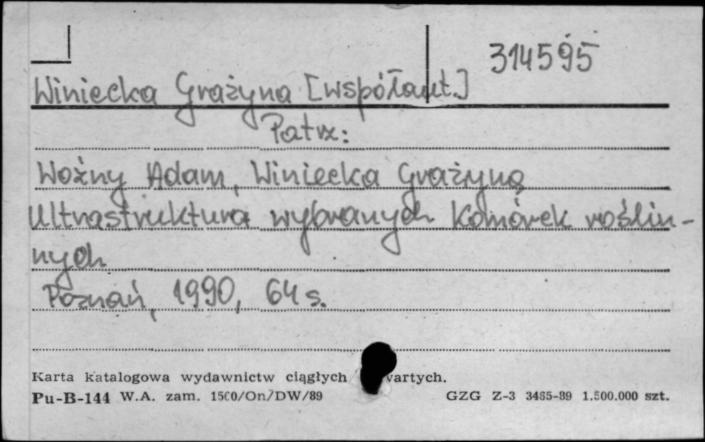 314595
Winiecka Grażyna [współaut.]
Patrz:
Woźny Adam, Winiecka Grażyna
Ultrastruktura wybranych komórek roślin-
nych
Poznań, 1990, 64 s.
Karta katalogowa wydawnictw ciągłych wartych.
Pu-B-144 W.A. zam. 1500/On/DW/89 GZG Z-3 3485-89 1.500.000 szt.